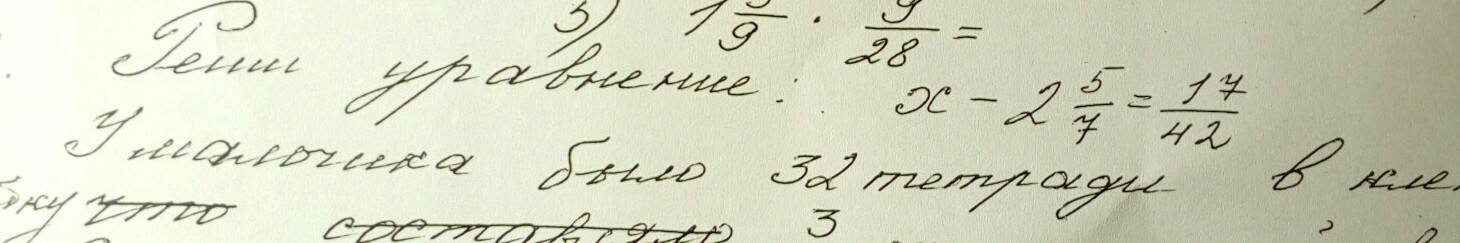 5) 1 5/9 · 9/28 =
Реши уравнение: x - 2 5/7 = 17/42
У мальчика было 32 тетради в
что составляло 3